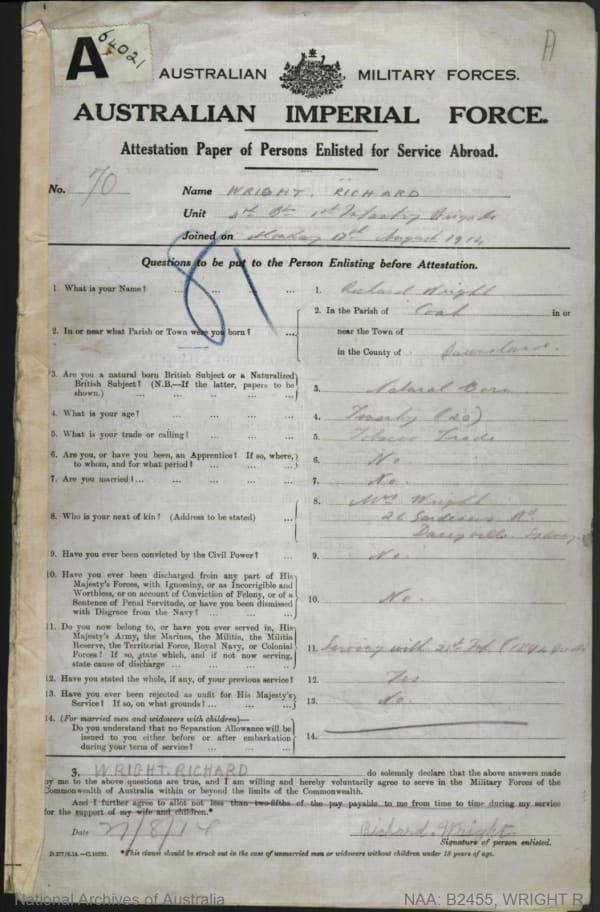 A 64021
A
AUSTRALIAN MILITARY FORCES.
AUSTRALIAN IMPERIAL FORCE.
Attestation Paper of Persons Enlisted for Service Abroad.
No. 70
Name WRIGHT. RICHARD
Unit 1st Infantry Brigade
Joined on Monday 17th August 1914
81
Questions to be put to the Person Enlisting before Attestation.
1. What is your Name? ... ... ... ... 1. Richard Wright
2. In or near what Parish or Town were you born? ... 2. In the Parish of in or
near the Town of
in the County of
3. Are you a natural born British Subject or a Naturalized
British Subject? (N.B.—If the latter, papers to be
shown.) ... ... ... ... 3. Natural Born
4. What is your age? ... ... ... ... 4. Twenty (20)
5. What is your trade or calling? ... ... ... 5. Tobacco Trade
6. Are you, or have you been, an Apprentice? If so, where,
to whom, and for what period? ... ... ... 6. No
7. Are you married? ... ... ... ... 7. No.
8. Who is your next of kin? (Address to be stated) ... 8. Mrs Wright
26 Rd
Daceyville Sydney
9. Have you ever been convicted by the Civil Power? ... 9. No.
10. Have you ever been discharged from any part of His
Majesty's Forces, with Ignominy, or as Incorrigible and
Worthless, or on account of Conviction of Felony, or of a
Sentence of Penal Servitude, or have you been dismissed
with Disgrace from the Navy? ... ... ... 10. No.
11. Do you now belong to, or have you ever served in, His
Majesty's Army, the Marines, the Militia, the Militia
Reserve, the Territorial Force, Royal Navy, or Colonial
Forces? If so, state which, and if not now serving,
state cause of discharge ... ... ... 11. Serving with
12. Have you stated the whole, if any, of your previous service? 12. Yes.
13. Have you ever been rejected as unfit for His Majesty's
Service? If so, on what grounds? ... ... ... 13. No.
14. (For married men and widowers with children)—
Do you understand that no Separation Allowance will be
issued to you either before or after embarkation
during your term of service? ... ... ... 14.
3, WRIGHT. RICHARD do solemnly declare that the above answers made
by me to the above questions are true, and I am willing and hereby voluntarily agree to serve in the Military Forces of the
Commonwealth of Australia within or beyond the limits of the Commonwealth.
And I further agree to allot not less than two-fifths of the pay payable to me from time to time during my service
for the support of my wife and children.*
Date 27/8/14 Richard Wright
Signature of person enlisted.
*This clause should be struck out in the case of unmarried men or widowers without children under 18 years of age.
National Archives of Australia NAA: B2455, WRIGHT R